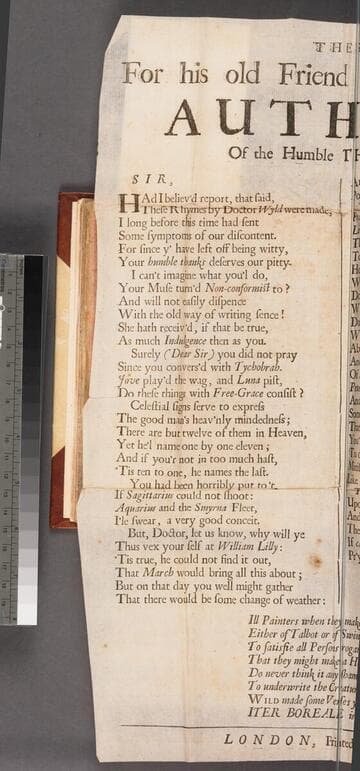 THE
For his old Friend
AUTH
Of the Humble TH
SIR,
HAd I believ'd report, that said,
These Rhymes by Doctor Wyld were made,
I long before this time had sent
Some symptoms of our discontent.
For since y' have left off being witty,
Your humble thanks deserves our pitty.
I can't imagine what you'l do,
Your Muse turn'd Non-conformist to?
And will not easily dispence
With the old way of writing sence!
She hath receiv'd, if that be true,
As much Indulgence then as you.
Surely (Dear Sir) you did not pray
Since you convers'd with Tychobrah.
Jove play'd the wag, and Luna pist,
Do these things with Free-Grace consist?
Celestial signs serve to express
The good man's heav'nly mindedness;
There are but twelve of them in Heaven,
Yet he'l name one by one eleven;
And if you'r not in too much hast,
'Tis ten to one, he names the last.
You had been horribly put to't,
If Sagittarius could not shoot:
Aquarius and the Smyrna Fleet,
I'le swear, a very good conceit.
But, Doctor, let us know, why will ye
Thus vex your self at William Lilly:
'Tis true, he could not find it out,
That March would bring all this about;
But on that day you well might gather
That there would be some change of weather:
Ill Painters when they mak
Either of Talbot or of Swin
To satisfie all Persons
That they might make a H
Do never think it any sham
To underwrite the
WILD made some Verses
ITER BOREALE
LONDON, Printed